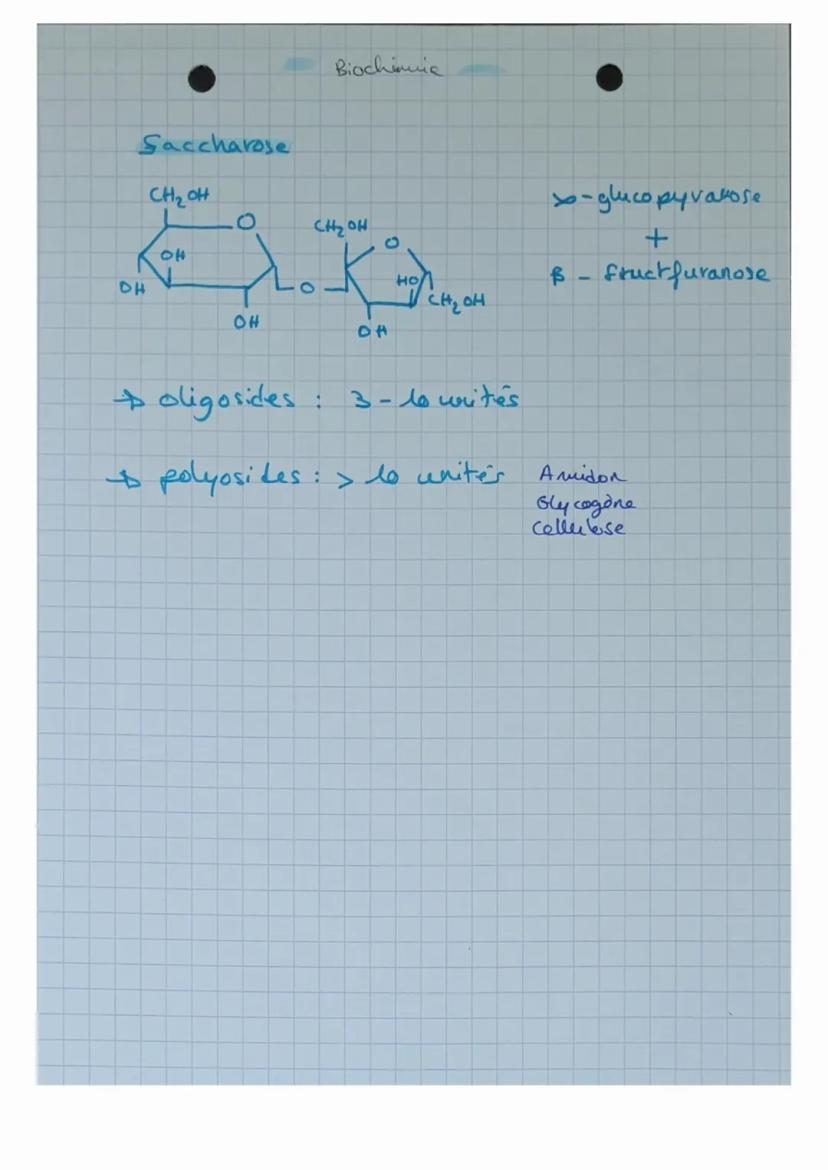 Biochimie
Saccharose
CH2OH
O
OH
OH
OH
O
CH2OH
O
HO
CH2OH
OH
α-glucopyranose
+
β - fructfuranose
→ oligosides : 3 - 10 unités
→ polyosides : > 10 unités
Amidon
Glycogène
Cellulose